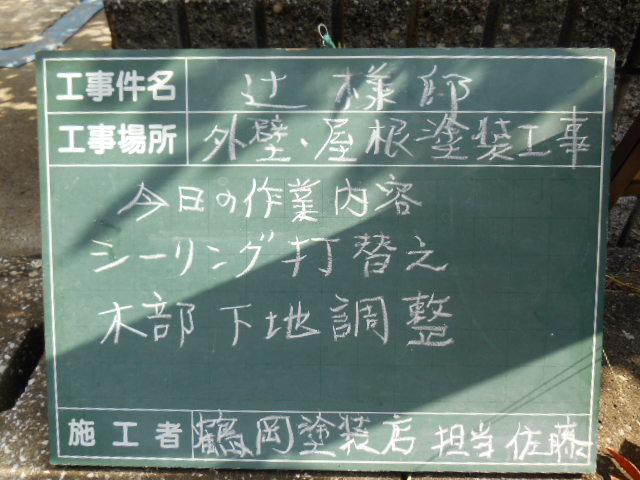 工事件名 辻様邸
工事場所 外壁、屋根塗装工事
今日の作業内容
シーリング打替え
木部下地調整
施工者 鶴岡塗装店 担当 佐藤